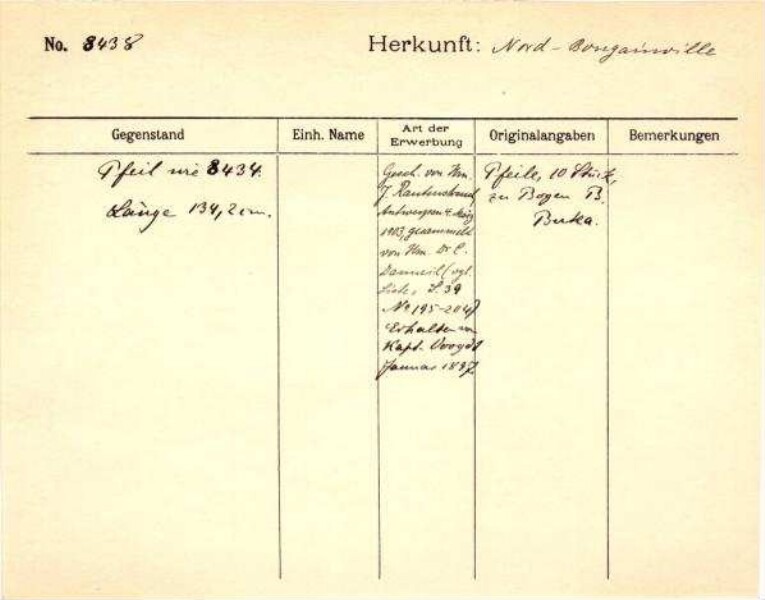 No. 8438
Herkunft: Nord-Bougainville
Gegenstand
Einh. Name
Art der
Erwerbung
Originalangaben
Bemerkungen
Pfeil wie 8434.
Länge 134,2 cm.
Gesch. von Hrn.
J. Rautenstrauch
Antwerpen 4. März
1903, gesammelt
von Hrn. Dr C.
Danneil (vgl.
Liste, S. 39
No 195-204)
Erhalten von
Kapt. Voogdt
Januar 1897
Pfeile, 10 Stück,
zu Bogen B.
Buka.